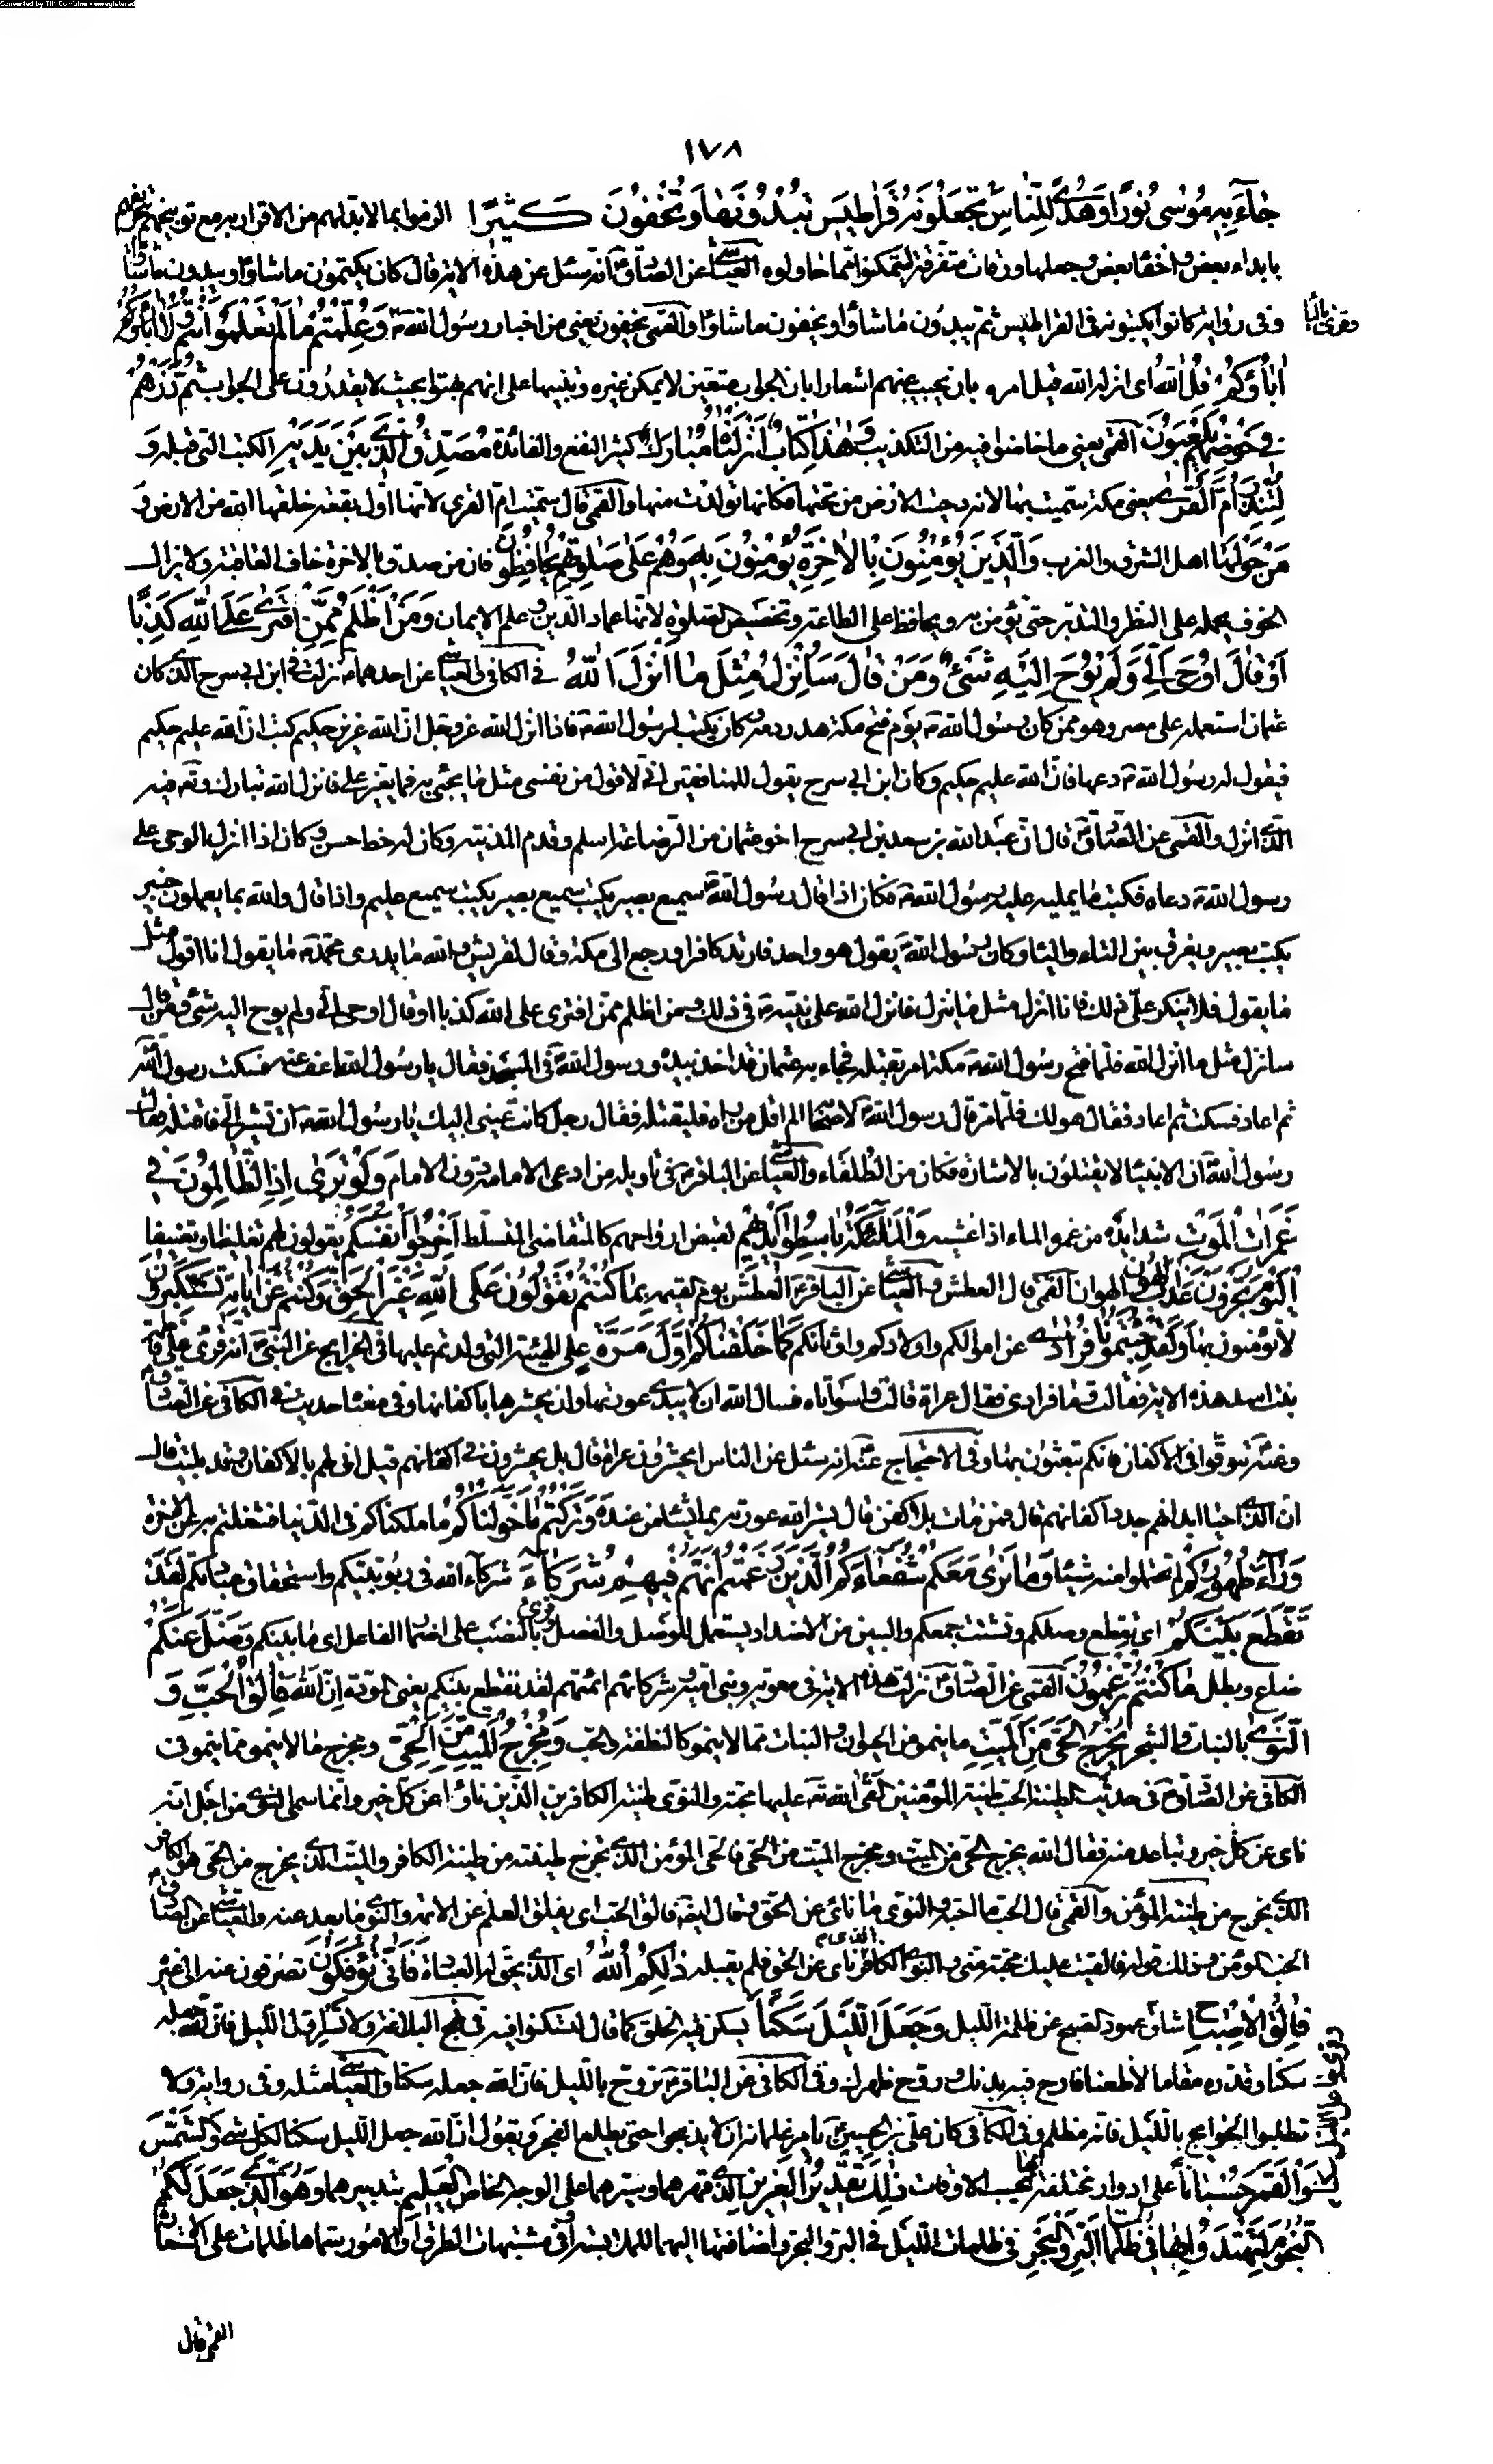 Converted by Tiff Combine - unregistered
١٧٨
جَاءَ بِهِ مُوسٰى نُورًا وَهُدًى لِلنّاسِ تَجْعَلُونَهُ قَرَاطِيسَ تُبْدُونَهَا وَتُخْفُونَ كَثِيرًا الزموا بما لا بد لهم من الاقرار به مع توبيخهم
بابداء بعض واخفاء بعض وجعلها ورقات متفرقة ليتمكنوا مما حاولوه العياشي عن الصادق انه سئل عن هذه الاية قال كان يكتمون ما شاؤا ويبدون ما شاؤا
وفى رواية كانوا يكتبونه فى القراطيس ثم يبدون ما شاؤا ويخفون ما شاؤا والقمى يخفون يعنى من اخبار رسول الله وَعُلِّمْتُمْ مَا لَمْ تَعْلَمُوا أَنْتُمْ وَلَا آبَاؤُكُمْ
قُلِ اللّٰهُ اى انزله الله قيل امره بان يجيب عنهم اشعارا بان الجواب متعين لا يمكن غيره وتنبيها على انهم بهتوا بحيث لا يقدرون على الجواب ثُمَّ ذَرْهُمْ
فِي خَوْضِهِمْ يَلْعَبُونَ القمى يعنى ما خاضوا فيه من التكذيب وَهٰذَا كِتَابٌ أَنْزَلْنَاهُ مُبَارَكٌ كثير النفع والفائدة مُصَدِّقُ الَّذِي بَيْنَ يَدَيْهِ الكتب التى قبله وَ
لِتُنْذِرَ أُمَّ الْقُرٰى يعنى مكة سميت بها لانه دحيت الارض من تحتها فكانها تولدت منها والقمى قال سميت ام القرى لانها اول بقعة خلقها الله من الارض وَ
مَنْ حَوْلَهَا اهل الشرق والغرب وَالَّذِينَ يُؤْمِنُونَ بِالْآخِرَةِ يُؤْمِنُونَ بِهِ وَهُمْ عَلَى صَلَاتِهِمْ يُحَافِظُونَ فان من صدق بالاخرة خاف العاقبة ولا يزال
الخوف يحمله على النظر والتدبر حتى يؤمن به ويحافظ على الطاعة وتخصيص الصلوة لانها عماد الدين وعلم الايمان وَمَنْ أَظْلَمُ مِمَّنِ افْتَرٰى عَلَى اللّٰهِ كَذِبًا
أَوْ قَالَ أُوحِيَ إِلَيَّ وَلَمْ يُوحَ إِلَيْهِ شَيْءٌ وَمَنْ قَالَ سَأُنْزِلُ مِثْلَ مَا أَنْزَلَ اللّٰهُ فى الكافى والعياشي عن احدهما نزلت فى ابن ابى سرح الذى كان
عثمان استعمله على مصر وهو ممن كان رسول الله يوم فتح مكة هدر دمه وكان يكتب لرسول الله فاذا انزل الله عز وجل ان الله عزيز حكيم كتب ان الله عليم حكيم
فيقول له رسول الله دعها فان الله عليم حكيم وكان ابن ابى سرح يقول للمنافقين انى لاقول من نفسى مثل ما يجئ به فما يغير على فانزل الله تبارك وتعالى فيه
الذى انزل والقمى عن الصادق قال ان عبد الله بن سعد بن ابى سرح اخو عثمان من الرضاعة اسلم وقدم المدينة وكان له خط حسن وكان اذا انزل الوحى على
رسول الله دعاه فكتب ما يمليه عليه رسول الله فكان اذا قال رسول الله سميع بصير يكتب سميع عليم واذا قال والله بما يعملون خبير
يكتب بصير ويفرق بين التاء والياء وكان رسول الله يقول هو واحد فارتد كافرا ورجع الى مكة وقال لقريش والله ما يدرى محمد ما يقول انا اقول مثل
ما يقول فلا ينكر على ذلك فانا انزل مثل ما ينزل فانزل الله على نبيه فى ذلك ومن اظلم ممن افترى على الله كذبا او قال اوحى الى ولم يوح اليه شئ ومن قال
سانزل مثل ما انزل الله فلما فتح رسول الله مكة امر بقتله فجاء به عثمان قد اخذ بيده ورسول الله فى المسجد فقال يا رسول الله اعف عنه فسكت رسول الله
ثم اعاد فسكت ثم اعاد فقال هو لك فلما مر قال رسول الله لاصحابه الم اقل من راه فليقتله فقال رجل كانت عينى اليك يا رسول الله ان تشير الى فاقتله فقال
رسول الله ان الانبياء لا يقتلون بالاشارة فكان من الطلقاء والعياشي عن الباقر فى تاويله من ادعى الامامة دون الامام وَلَوْ تَرٰى إِذِ الظَّالِمُونَ فِي
غَمَرَاتِ الْمَوْتِ شدايده من غمره الماء اذا غشيه وَالْمَلَائِكَةُ بَاسِطُوا أَيْدِيهِمْ لقبض ارواحهم كالمتقاضى المتسلط أَخْرِجُوا أَنْفُسَكُمُ يقولون لهم تغليظا وتعنيفا
الْيَوْمَ تُجْزَوْنَ عَذَابَ الْهُونِ الهوان القمى قال العطش والعياشي عن الباقر العطش يوم القيمة بِمَا كُنْتُمْ تَقُولُونَ عَلَى اللّٰهِ غَيْرَ الْحَقِّ وَكُنْتُمْ عَنْ آيَاتِهِ تَسْتَكْبِرُونَ
لا تؤمنون بها وَلَقَدْ جِئْتُمُونَا فُرَادٰى عن اموالكم واولادكم واوثانكم كَمَا خَلَقْنَاكُمْ أَوَّلَ مَرَّةٍ على الهيئة التى ولدتم عليها فى الخرايج عن النبى انه قرئ على فاطمة
بنت اسد هذه الاية فقالت وما فرادى فقال عراة قالت وا سواتاه فسال الله ان لا يبدى عورتها وان يحشرها باكفانها وفى معناه حديث فى الكافى عن الصادق
وعنه تنوقوا فى الاكفان فانكم تبعثون بها وفى الاحتجاج عنه انه سئل عن الناس ايحشرون عراة قال بل يحشرون فى اكفانهم قيل انى لهم بالاكفان وقد بليت قال
ان الذى احيا ابدانهم جدد اكفانهم قال فمن مات بلا كفن قال يستر الله عورته بما يشاء من عنده وَتَرَكْتُمْ مَا خَوَّلْنَاكُمْ ما ملكناكم فى الدنيا فشغلتم به عن الاخرة
وَرَاءَ ظُهُورِكُمْ لم تحملوا منه شيئا وَمَا نَرٰى مَعَكُمْ شُفَعَاءَكُمُ الَّذِينَ زَعَمْتُمْ أَنَّهُمْ فِيكُمْ شُرَكَاءُ شركاء الله فى ربوبيتكم واستحقاق عبادتكم لَقَدْ
تَقَطَّعَ بَيْنَكُمْ اى تقطع وصلكم وتشتت جمعكم والبين من الاضداد يستعمل للوصل والفصل وقرئ بالنصب على اضمار الفاعل اى ما بينكم وَضَلَّ عَنْكُمْ
ضاع وبطل مَا كُنْتُمْ تَزْعُمُونَ القمى عن الصادق نزلت هذه الاية فى معوية وبنى امية وشركائهم ائمتهم لقد تقطع بينكم يعنى المودة إِنَّ اللّٰهَ فَالِقُ الْحَبِّ وَ
النَّوٰى بالنبات والشجر يُخْرِجُ الْحَيَّ مِنَ الْمَيِّتِ ما ينمو من الحيوان والنبات مما لا ينمو كالنطفة والحب وَمُخْرِجُ الْمَيِّتِ مِنَ الْحَيِّ ومخرج ما لا ينمو مما ينمو فى
الكافى عن الصادق فى حديث الطينة الحب طينة المؤمنين القى الله عليها محبته والنوى طينة الكافرين الذين ناؤا عن كل خير وانما سمى النوى من اجل انه
ناى عن كل خير وتباعد منه فقال الله يخرج الحى من الميت ومخرج الميت من الحى فالحى المؤمن الذى تخرج طينته من طينة الكافر والميت الذى يخرج من الحى هو الكافر
الذى يخرج من طينة المؤمن والقمى قال الحب ما احبه والنوى ما ناى عن الحق وقال ايضا فالق الحب اى يفلق العلم عن الائمة والنوى ما بعد عنه والعياشي عن الصادق
الحب المؤمن وذلك قوله والقيت عليك محبة منى والنوى الكافر الذى ناى عن الحق فلم يقبله ذٰلِكُمُ اللّٰهُ اى الذى يحق له العبادة فَأَنّٰى تُؤْفَكُونَ تصرفون عنه الى غيره
فَالِقُ الْإِصْبَاحِ شاق عمود الصبح عن ظلمة الليل وَجَعَلَ اللَّيْلَ سَكَنًا يسكن فيه الخلق كما قال لتسكنوا فيه فى نهج البلاغة ولا تسر اول الليل فان الله جعله
سكنا وقدره مقاما لا ظعنا فارح فيه بدنك وروح ظهرك وفى الكافى عن الباقر تزوج بالليل فان الله جعله سكنا والعياشي مثله وفى رواية ولا
تطلبوا الحوايج بالليل فانه مظلم وفى الكافى كان على بن الحسين يامر غلمانه ان لا يذبحوا حتى يطلع الفجر ويقول ان الله جعل الليل سكنا لكل شئ وَالشَّمْسَ
وَالْقَمَرَ حُسْبَانًا على ادوار مختلفة يحسب بهما الاوقات ذٰلِكَ تَقْدِيرُ الْعَزِيزِ الذى قهرهما وسيرهما على الوجه الخاص الْعَلِيمِ بتدبيرهما وَهُوَ الَّذِي جَعَلَ لَكُمُ
النُّجُومَ لِتَهْتَدُوا بِهَا فِي ظُلُمَاتِ الْبَرِّ وَالْبَحْرِ فى ظلمات الليل فى البر والبحر واضافتها اليهما للملابسة او فى مشتبهات الطرق والامور سماها ظلمات على الاستعارة
القمى قال